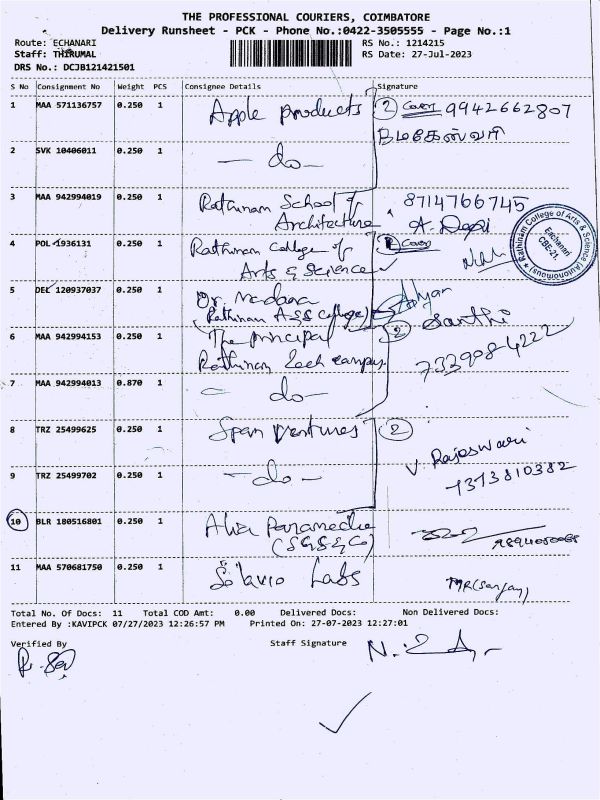 THE PROFESSIONAL COURIERS, COIMBATORE
Delivery Runsheet - PCK - Phone No.:0422-3505555 - Page No.:1
Route: ECHANARI
RS No.: 1214215
Staff: THIRUMAL
RS Date: 27-Jul-2023
DRS No.: DCJB121421501
S No Consignment No Weight PCS Consignee Details Signature
1 MAA 571136757 0.250 1 Apple products 2 Cover 9942662807
மகேஸ்வரி
2 SVK 10406011 0.250 1 - do -
3 MAA 942994019 0.250 1 Rathinam School of 8714766745
Architecture
4 POL 1936131 0.250 1 Rathinam College of Cover
Arts & Science
Rathinam College of Arts & Science (Autonomous)
Eachanari
CBE-21.
5 DEL 120937037 0.250 1 Dr.
(Rathinam A&S College)
6 MAA 942994153 0.250 1 The principal 2 Santhi
Rathinam Tech campus 7339084222
7 MAA 942994013 0.870 1 - do -
8 TRZ 25499625 0.250 1 Span ventures 2
Rajeswari
9 TRZ 25499702 0.250 1 - do - 7373810382
10 BLR 180516801 0.250 1
11 MAA 570681750 0.250 1 Labs
Total No. Of Docs: 11 Total COD Amt: 0.00 Delivered Docs: Non Delivered Docs:
Entered By :KAVIPCK 07/27/2023 12:26:57 PM Printed On: 27-07-2023 12:27:01
Verified By Staff Signature